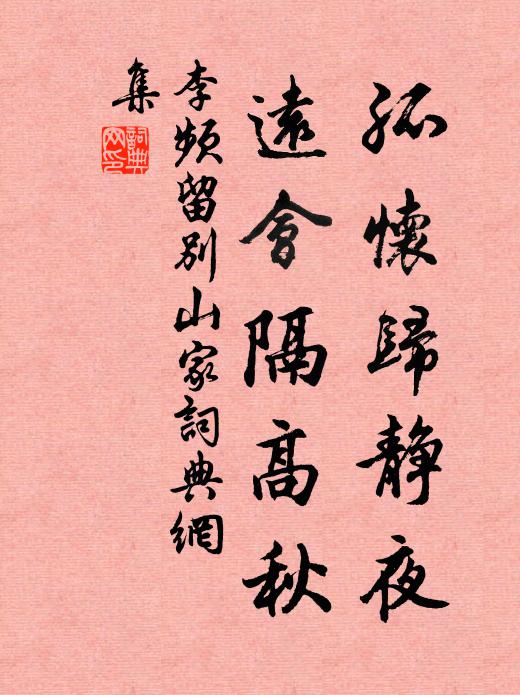 孤懷歸靜夜
遠會隔高秋
李頻留別山家詞典網
集
詞典網印